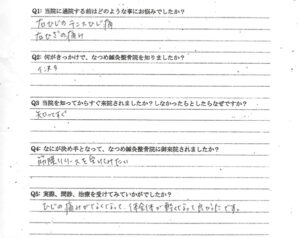 Q1: 当院に通院する前はどのような事にお悩みでしたか?
右ひじのテニスひじ痛
右ひざの痛み
Q2: 何がきっかけで、なつめ鍼灸整骨院を知りましたか?
Q3 当院を知ってからすぐ来院されましたか?しなかったらとしたらなぜですか?
知ってすぐ
Q4: なにが決め手となって、なつめ鍼灸整骨院に御来院されましたか?
筋膜リリースを受けてみたい
Q5: 実際、問診、治療を受けてみていかがでしたか?
ひじの痛みがなくなって、体全体が軽くなって良かったです。